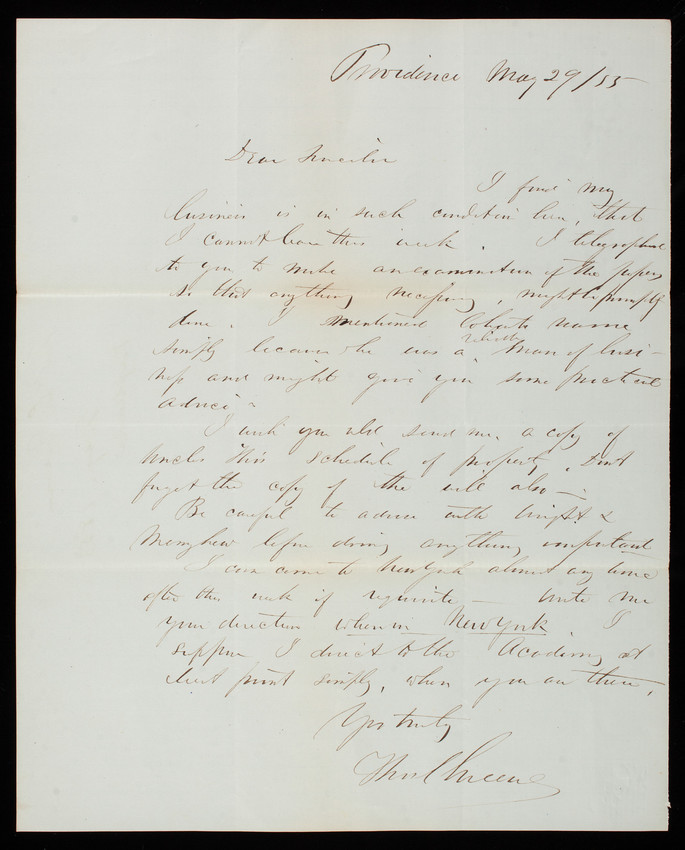 Providence May 29/55
Dear
I find my
business is in such condition here, that
I cannot leave this week. I telegraphed
to you to make an examination of the papers
so that anything necessary, might be promptly
done. I mentioned name
simply because he was a reliable man of busi-
ness and might give you some practical
advice.
I wish you wld send me a copy of
Uncle schedule of property. Dont
forget the copy of the will also—
Be careful to advise with Wright &
before doing anything important
I can come to New York almost any time
after this week if requisite — Write me
your direction when in New York I
suppose I direct to the Academy at
West point simply, when you are there,
Yrs truly
Thos C Greene